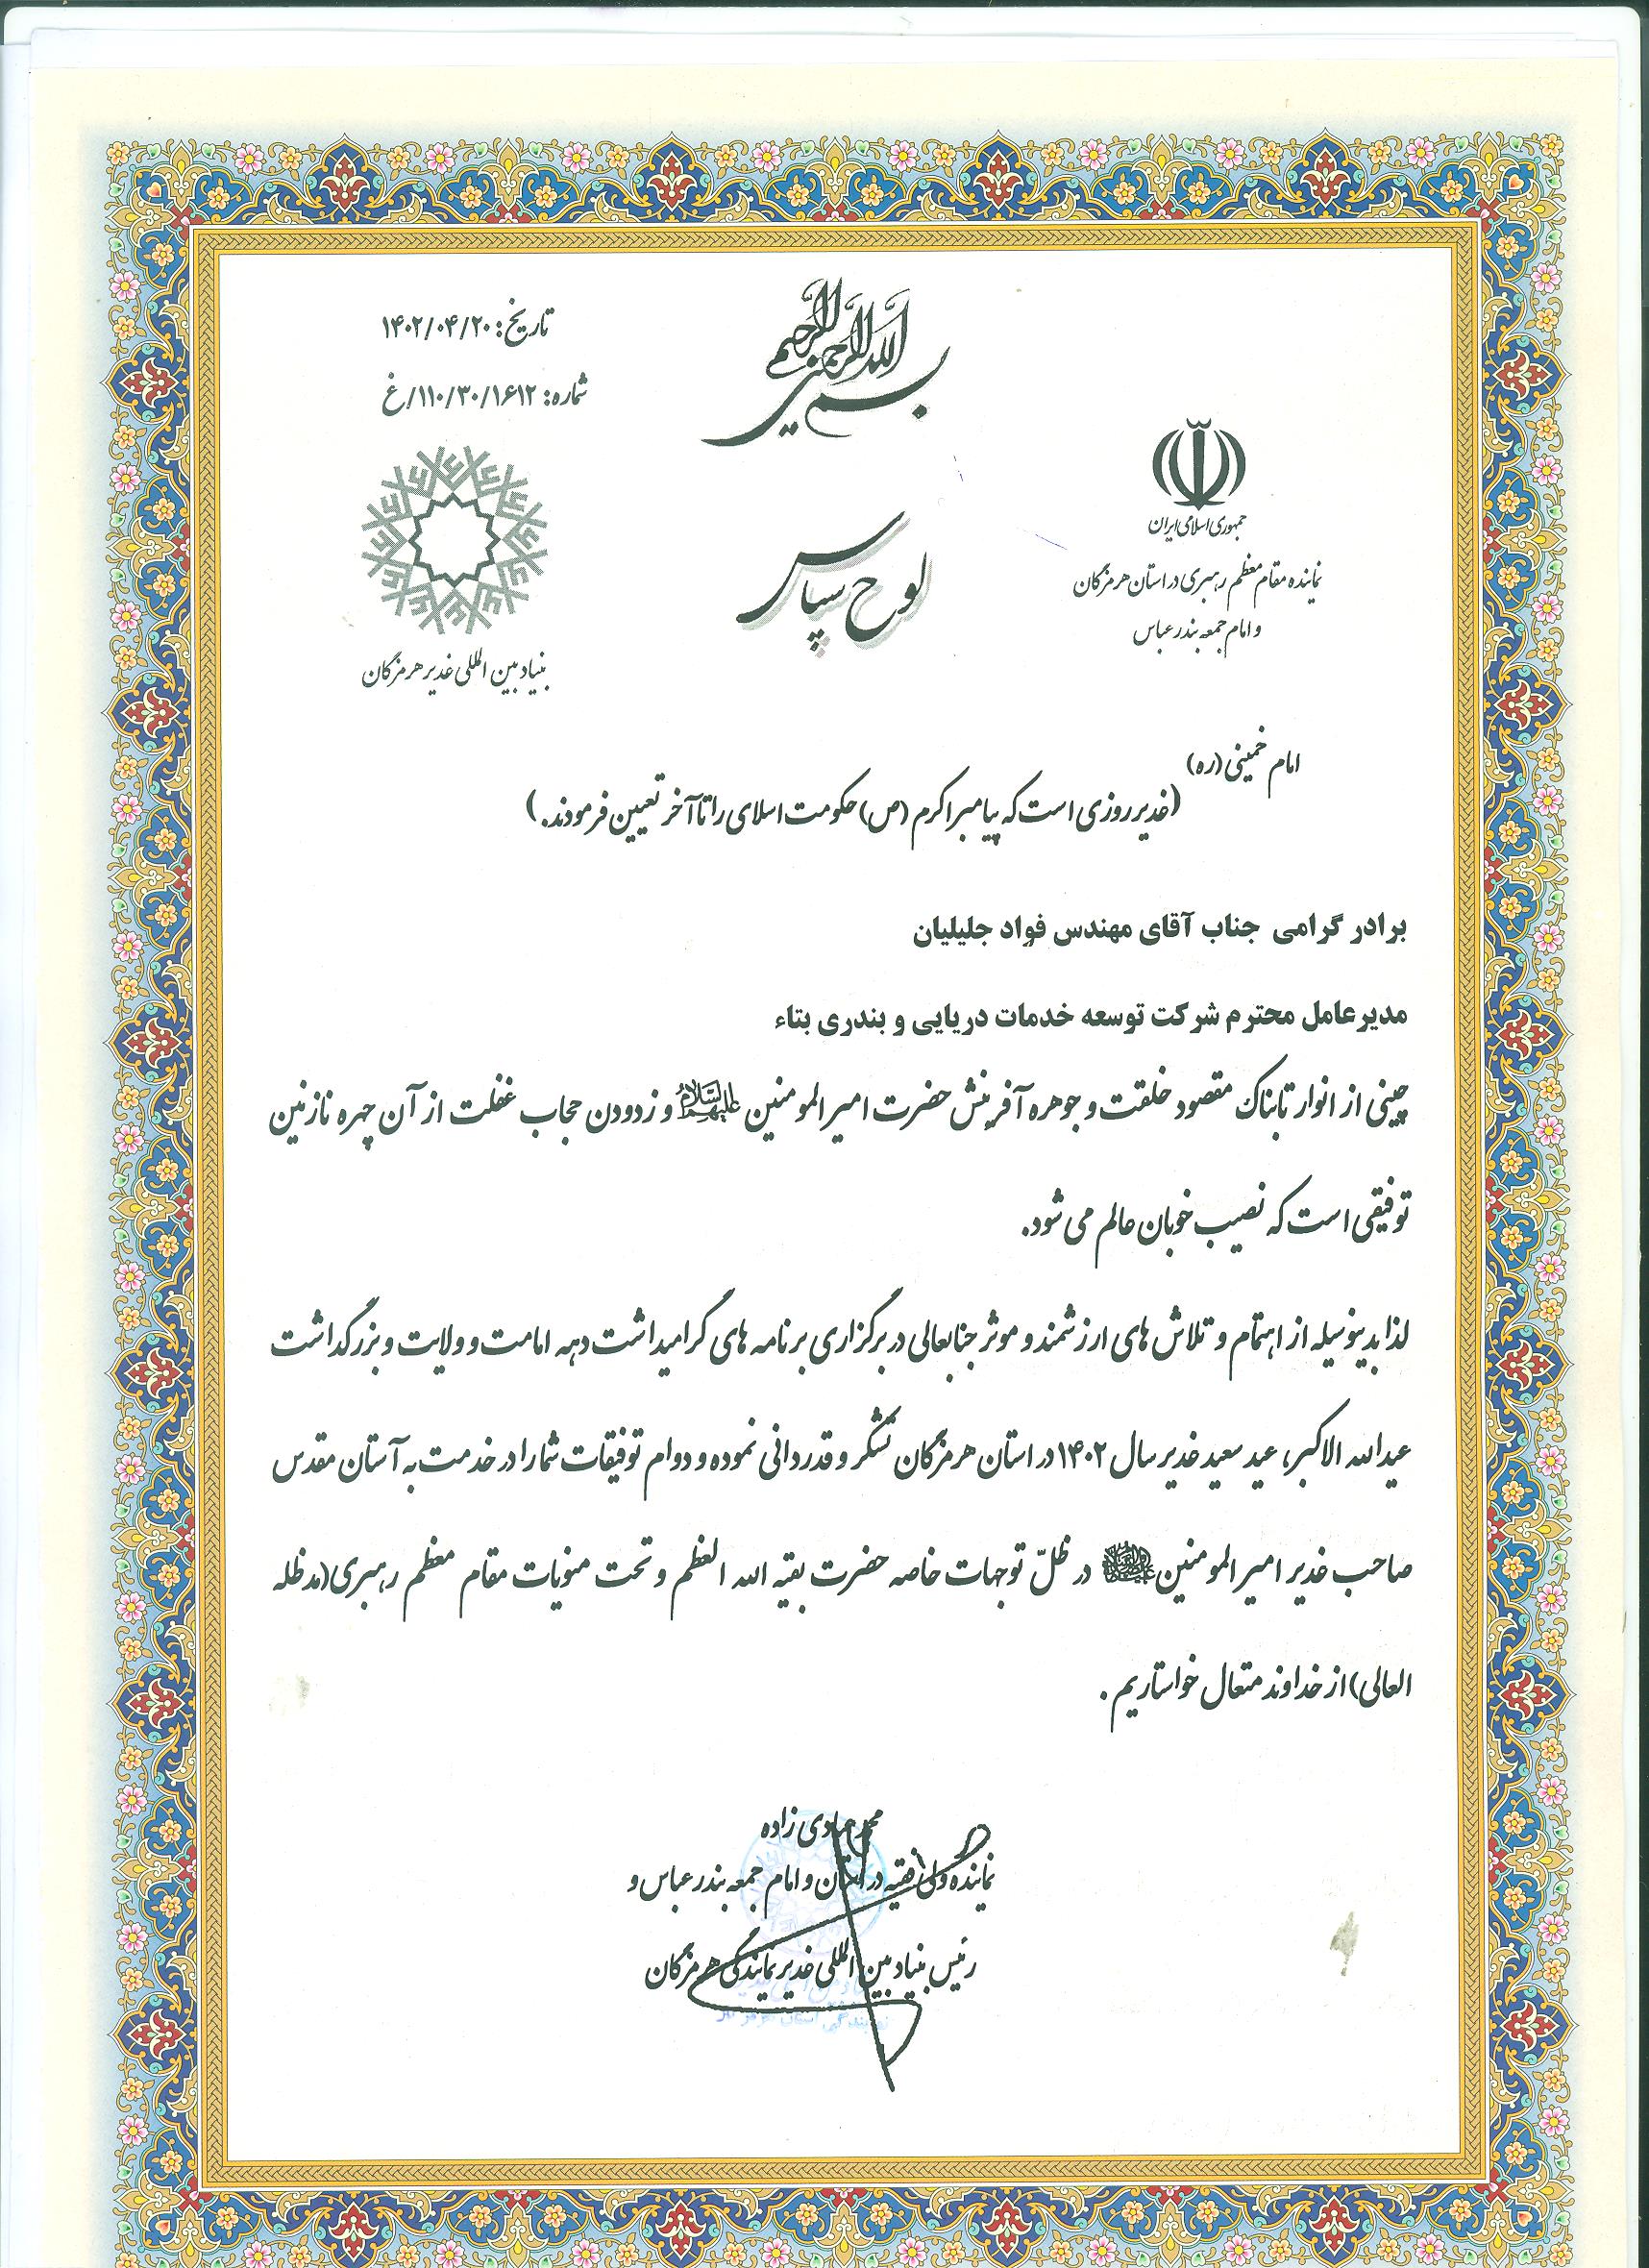 بسم الله الرحمن الرحیم
تاریخ: ۱۴۰۲/۰۴/۲۰
شماره: ۱۱۰/۳۰/۱۶۱۲/غ
جمهوری اسلامی ایران
نماینده مقام معظم رهبری در استان هرمزگان
و امام جمعه بندرعباس
لوح سپاس
بنیاد بین المللی غدیر هرمزگان
امام خمینی (ره)
(غدیر روزی است که پیامبر اکرم (ص) حکومت اسلامی را تا آخر تعیین فرمودند.)
برادر گرامی جناب آقای مهندس فواد جلیلیان
مدیرعامل محترم شرکت توسعه خدمات دریایی و بندری بتاء
چینی از انوار تابناک مقصود خلقت و جوهره آفرینش حضرت امیرالمومنین علیه‌السلام و زدودن حجاب غفلت از آن چهره نازنین
توفیقی است که نصیب خوبان عالم می شود.
لذا بدینوسیله از اهتمام و تلاش های ارزشمند و موثر جنابعالی در برگزاری برنامه های گرامیداشت دهه امامت و ولایت و بزرگداشت
عیدالله الاکبر، عید سعید غدیر سال ۱۴۰۲ در استان هرمزگان تشکر و قدردانی نموده و دوام توفیقات شما را در خدمت به آستان مقدس
صاحب غدیر امیرالمومنین در ظلّ توجهات خاصه حضرت بقیه الله العظم و تحت منویات مقام معظم رهبری(مدظله
العالی) از خداوند متعال خواستاریم .
محمد عبادی زاده
نماینده ولی فقیه در استان و امام جمعه بندرعباس و
رئیس بنیاد بین المللی غدیر نمایندگی هرمزگان